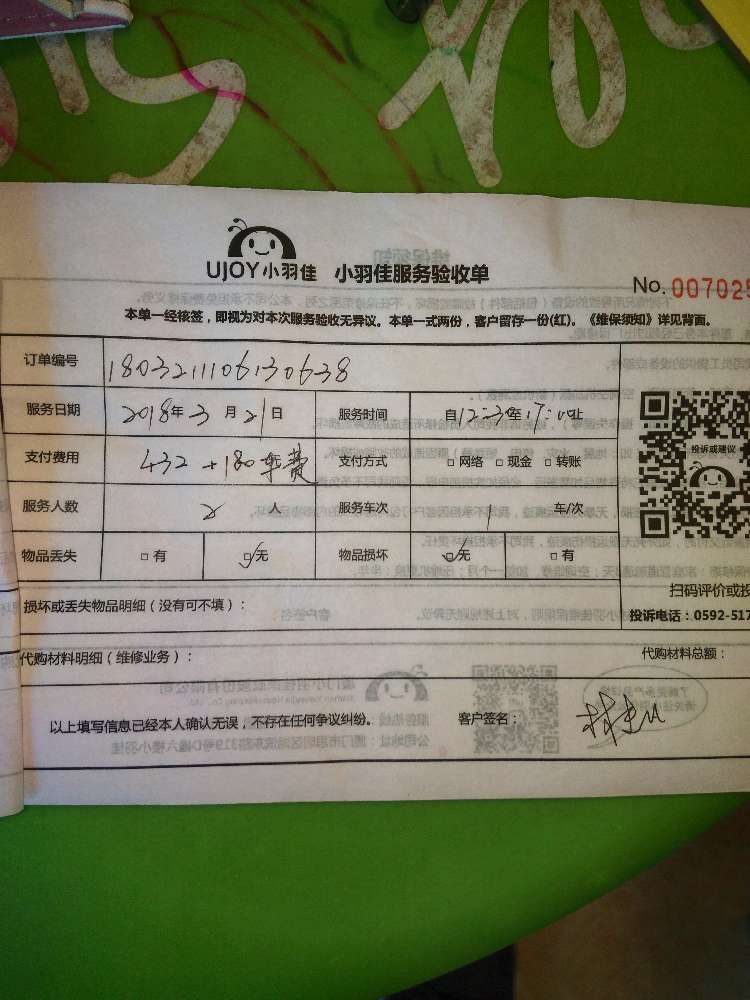 UJOY小羽佳 小羽佳服务验收单
No. 007025
本单一经核签，即视为对本次服务验收无异议。本单一式两份，客户留存一份(红)。《维保须知》详见背面。
订单编号 1803211106130638
服务日期 2018年3月21日 服务时间 自12:30至17:00止
支付费用 432 +180车费 支付方式 □网络 □现金 □转账
投诉或建议
服务人数 2 人 服务车次 1 车/次
物品丢失 □有 ☑无 物品损坏 ☑无 □有
扫码评价或投
损坏或丢失物品明细（没有可不填）：
投诉电话：0592-517
代购材料明细（维修业务）： 代购材料总额：
以上填写信息已经本人确认无误，不存在任何争议纠纷。 客户签名：